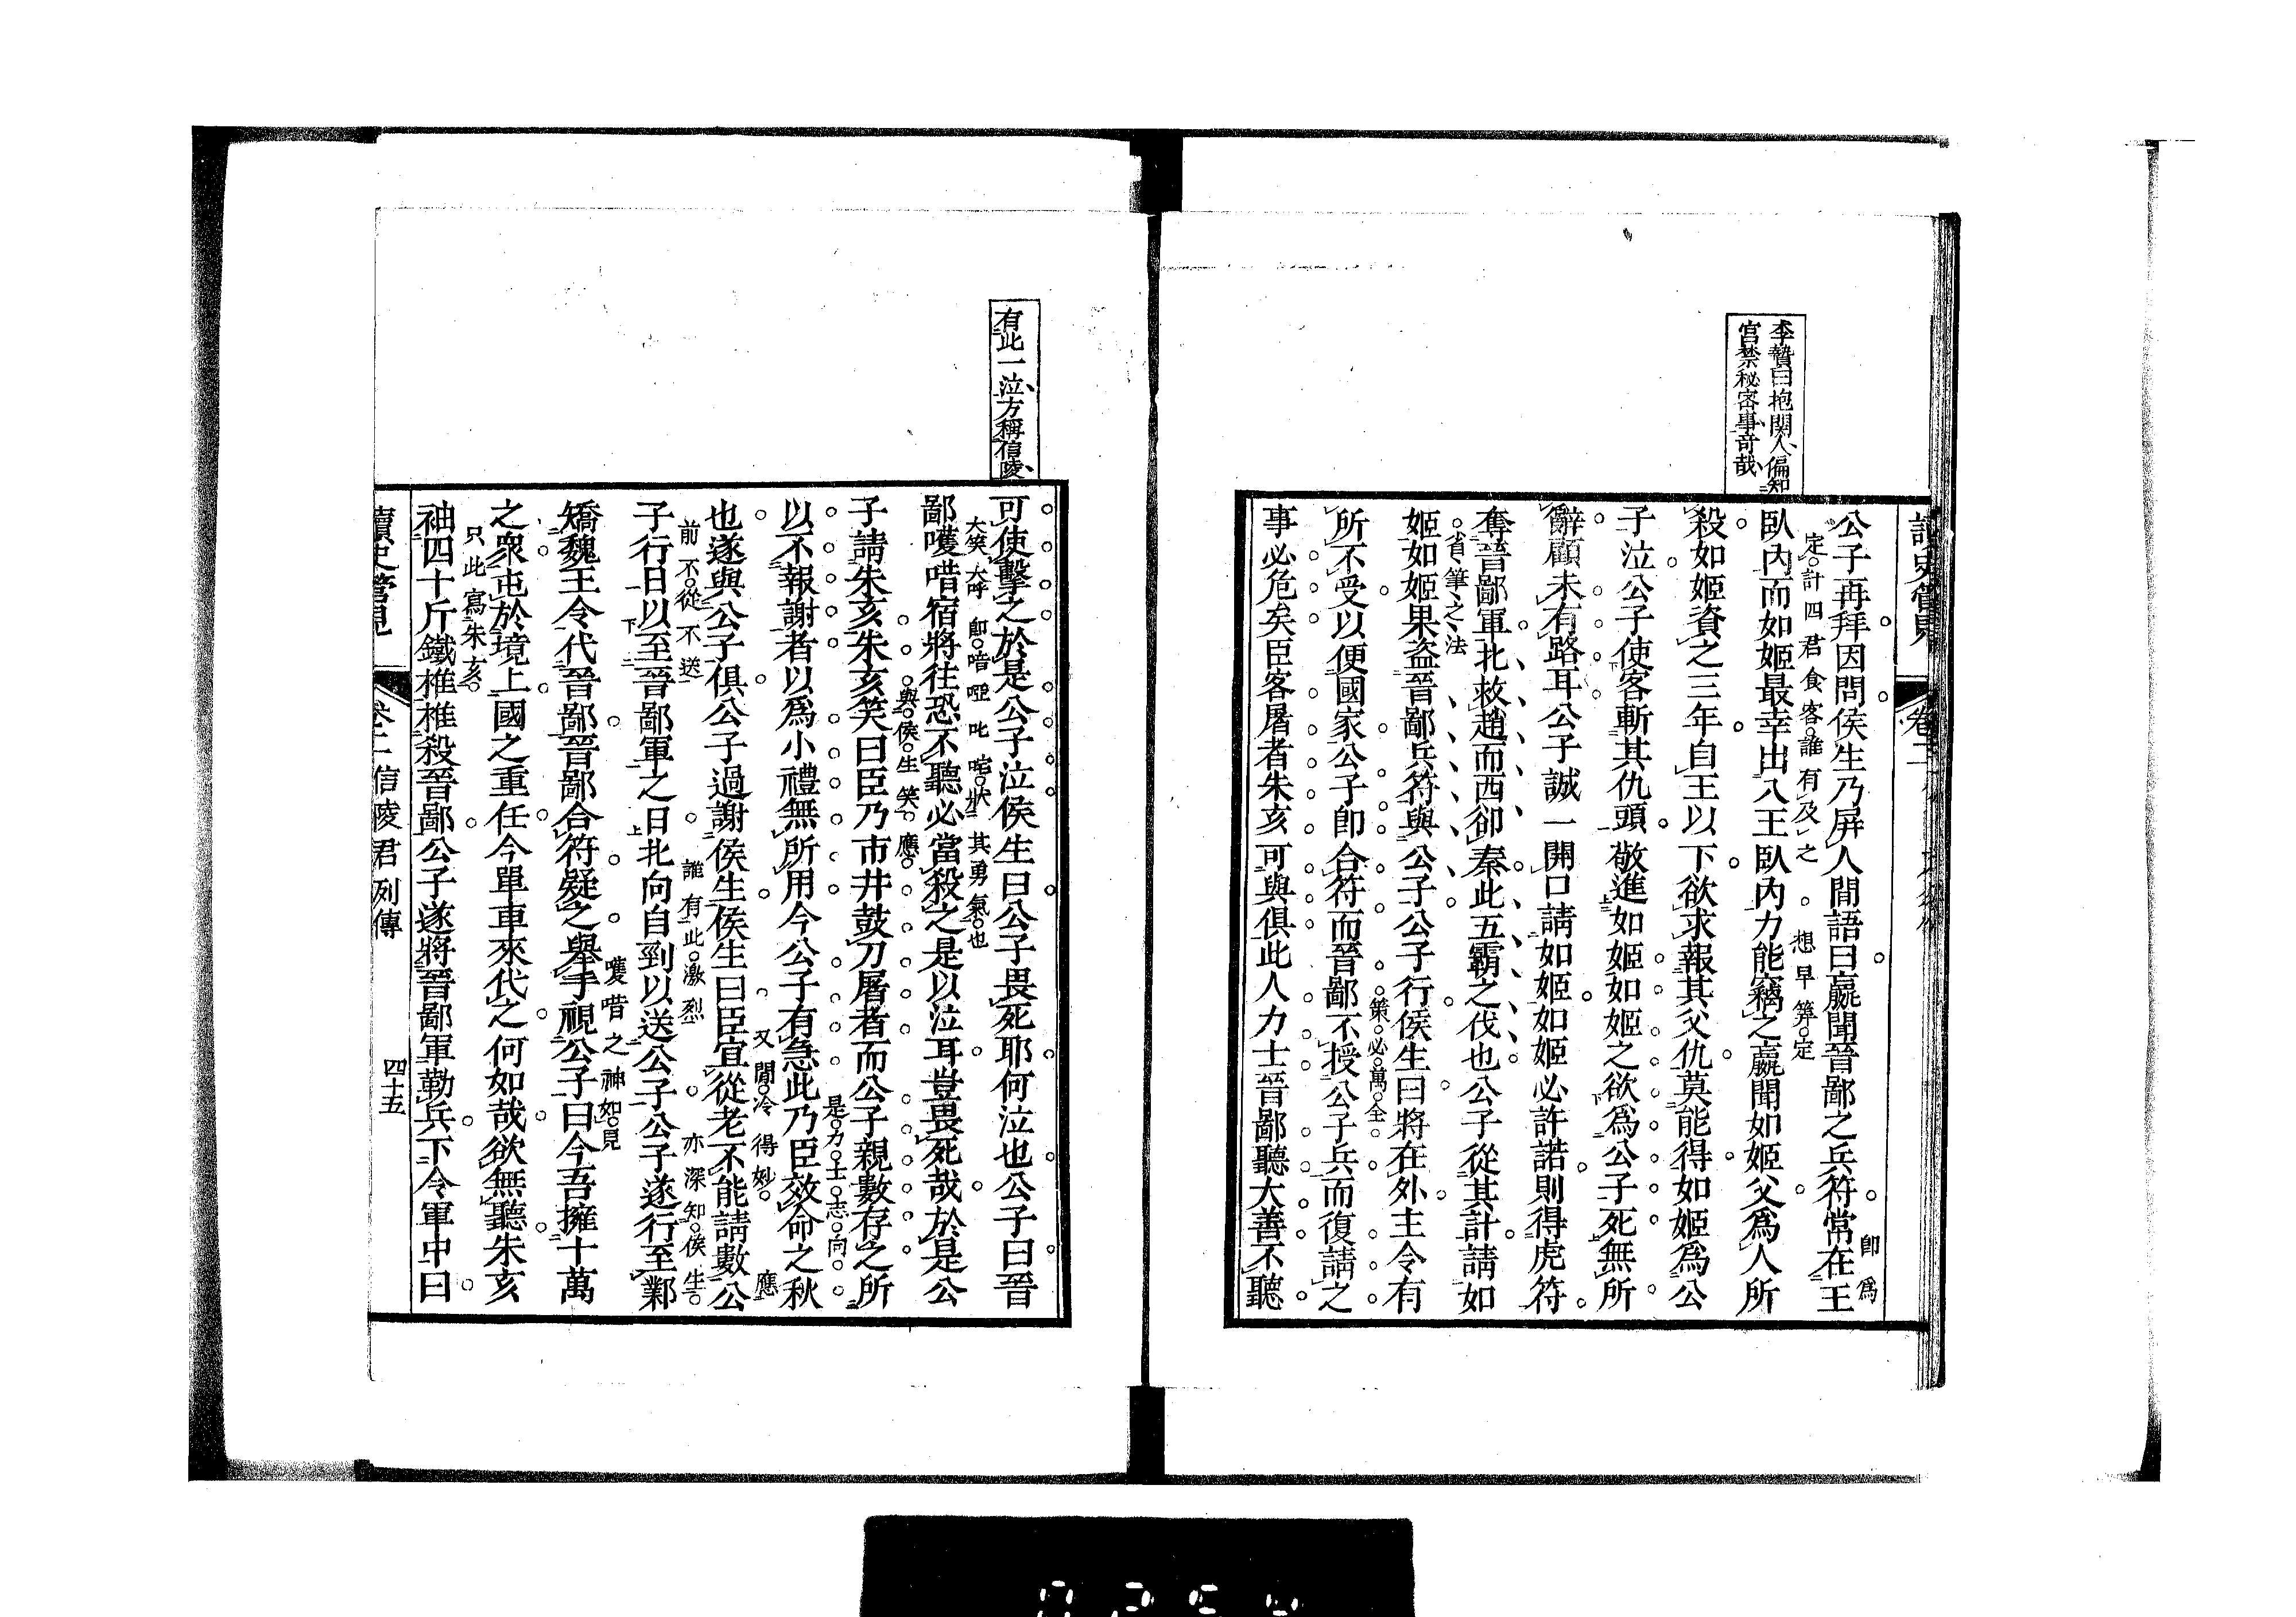 李贄曰抱関人偏知
宮禁秘密事奇哉
公子再拜因問侯生乃屏人間語曰嬴聞晉鄙之兵符常在王
即爲
定計四君食客誰有及之
想早筭定
臥內而如姬最幸出入王臥內力能竊之嬴聞如姬父爲人所
殺如姬資之三年自王以下欲求報其父仇莫能得如姬爲公
子泣公子使客斬其仇頭敬進如姬如姬之欲爲公子死無所
辭顧未有路耳公子誠一開口請如姬如姬必許諾則得虎符
奪晉鄙軍北救趙而西卻秦此五霸之伐也公子從其計請如
省筆之法
姬如姬果盜晉鄙兵符與公子公子行侯生曰將在外主令有
策必萬全
所不受以便國家公子即合符而晉鄙不授公子兵而復請之
事必危矣臣客屠者朱亥可與俱此人力士晉鄙聽大善不聽
有此一泣方稱信陵
可使擊之於是公子泣侯生曰公子畏死耶何泣也公子曰晉
大笑大呼
即喑啞叱咤狀
其勇氣也
鄙嚄唶宿將往恐不聽必當殺之是以泣耳豈畏死哉於是公
與侯生笑應
子請朱亥朱亥笑曰臣乃市井鼓刀屠者而公子親數存之所
是力士志向
以不報謝者以爲小禮無所用今公子有急此乃臣效命之秋
又閒冷得妙
應
也遂與公子俱公子過謝侯生侯生曰臣宜從老不能請數公
前不從不送
誰有此激烈
亦深知侯生
子行日以至晉鄙軍之日北向自剄以送公子公子遂行至鄴
嚄唶之神如見
矯魏王令代晉鄙晉鄙合符疑之舉手視公子曰今吾擁十萬
之衆屯於境上國之重任今單車來代之何如哉欲無聽朱亥
只此寫朱亥
袖四十斤鐵椎椎殺晉鄙公子遂將晉鄙軍勒兵下令軍中曰
讀史管見
卷二
信陵君列傳
四十五